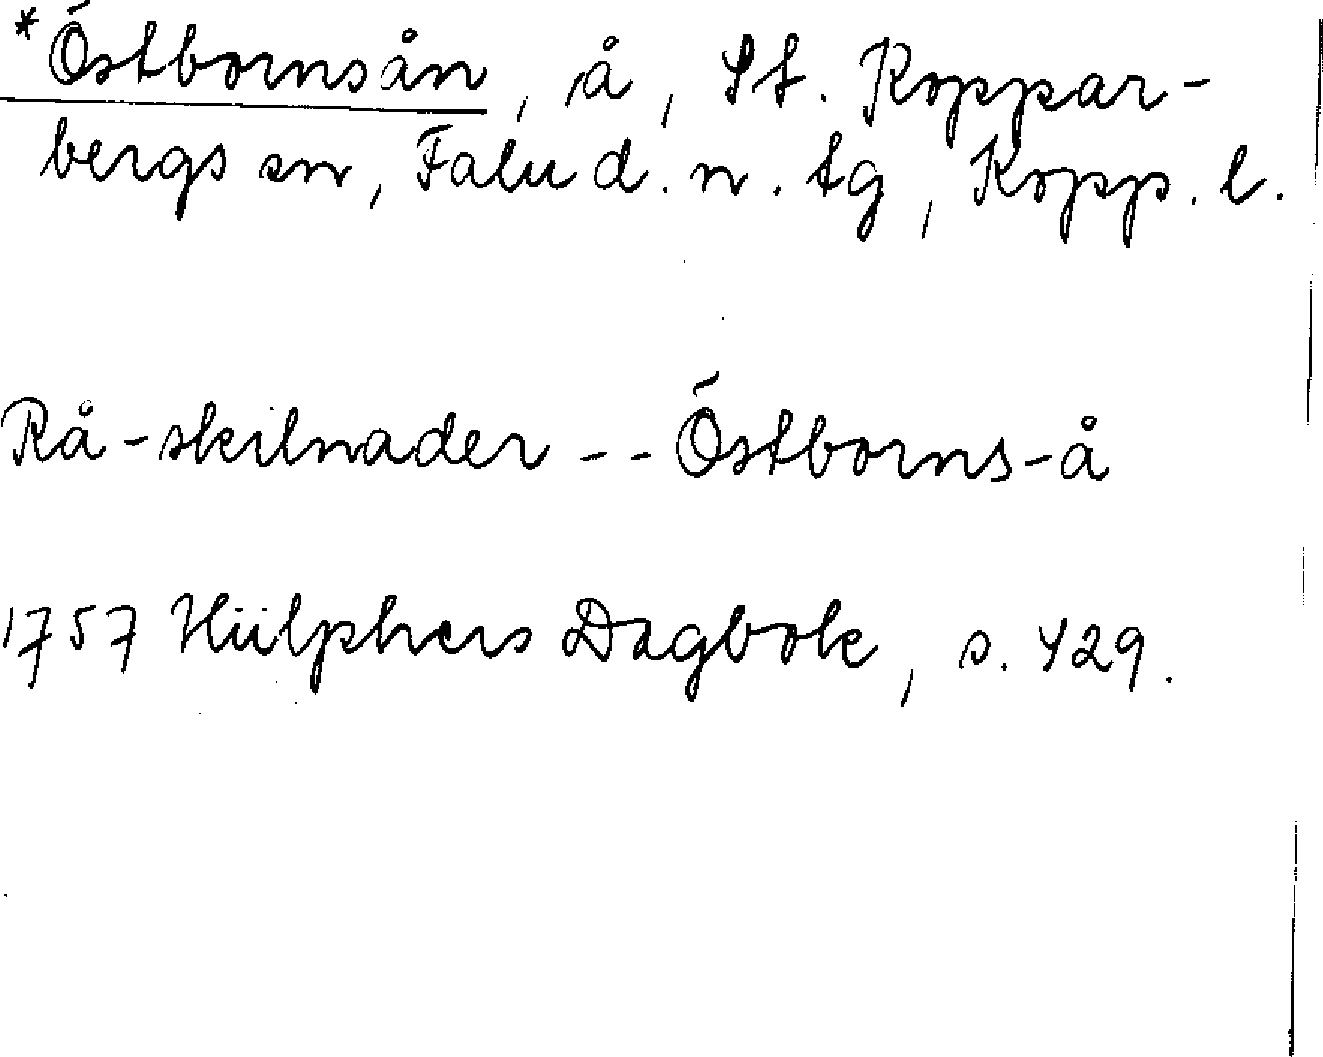 *Östbornsån, å, St. Koppar-
bergs sn, Falu d. n. tg, Kopp. l.
Rå-skilnader -- Östborns-å
1757 Hülphers Dagbok, s. 429.